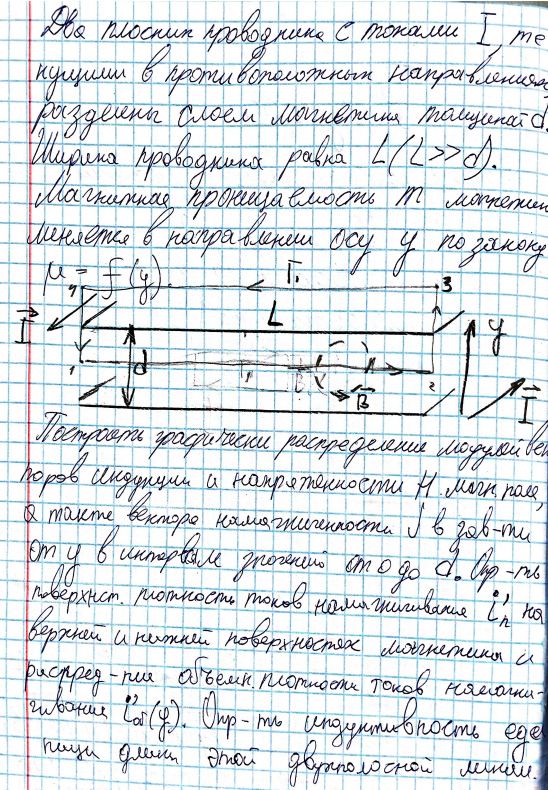 Два плоских проводника с токами I, те
кущими в противоположных направлениях,
разделены слоем магнетика толщиной d.
Ширина проводника равна L (L>>d).
Магнитная проницаемость m магнетик
меняется в направлении осу y по закону
μ = f(y).
4 I₁ 3
L
I
y
d
1 B 2
B
I
Построить графически распределение модулей век
торов индукции и напряженности H магн поля,
а также вектора намагниченности J в зав-ти
от y в интервале значений от 0 до d. Опр-ть
поверхност. плотность токов намагничивания i'п на
верхней и нижней поверхностях магнетика и
распред-ние объемн. плотности токов намагни-
чивания i'об(y). Опр-ть индуктивность еде
ницы длины этой двухполосной линии.